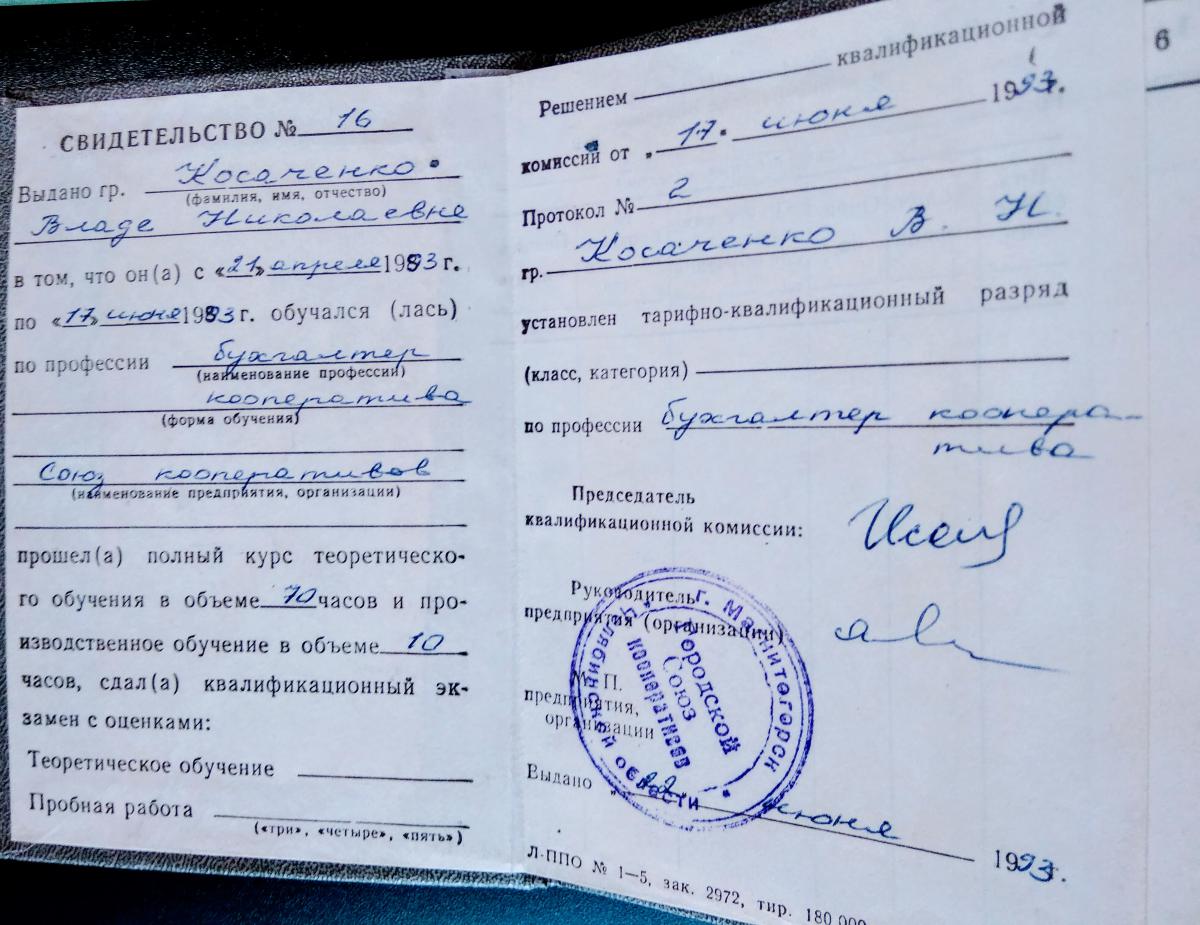 СВИДЕТЕЛЬСТВО № 16
Выдано гр. Косаченко
(фамилия, имя, отчество)
Владе Николаевне
в том, что он(а) с «21» апреля 1993 г.
по «17» июня 1993 г. обучался (лась)
по профессии бухгалтер
(наименование профессии)
кооператива
(форма обучения)
Союз кооперативов
(наименование предприятия, организации)
прошел(а) полный курс теоретическо-
го обучения в объеме 70 часов и про-
изводственное обучение в объеме 10
часов, сдал(а) квалификационный эк-
замен с оценками:
Теоретическое обучение
Пробная работа
(«три», «четыре», «пять»)
Решением квалификационной
комиссий от „17" июня 1993г.
Протокол № 2
гр. Косаченко В. Н.
установлен тарифно-квалификационный разряд
(класс, категория)
по профессии бухгалтер коопера-
тива
Председатель
квалификационной комиссии:
Руководитель
предприятия (организации)
М. П.
предприятия,
организации
г. Магнитогорск Челябинской области
Городской
Союз
кооперативов
Выдано „22" июня 1993г.
Л-ППО № 1—5, зак. 2972, тир. 180 000
6